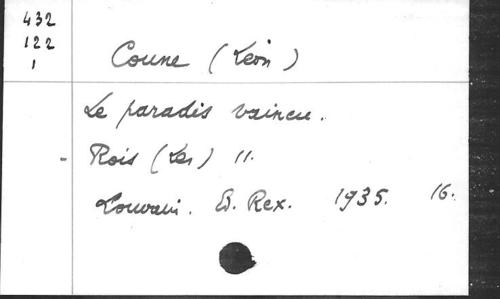 432
122
1
Coune (Léon)
Le paradis vaincu.
- Rois (Les) 11.
Louvain. Ed. Rex. 1935. 16.